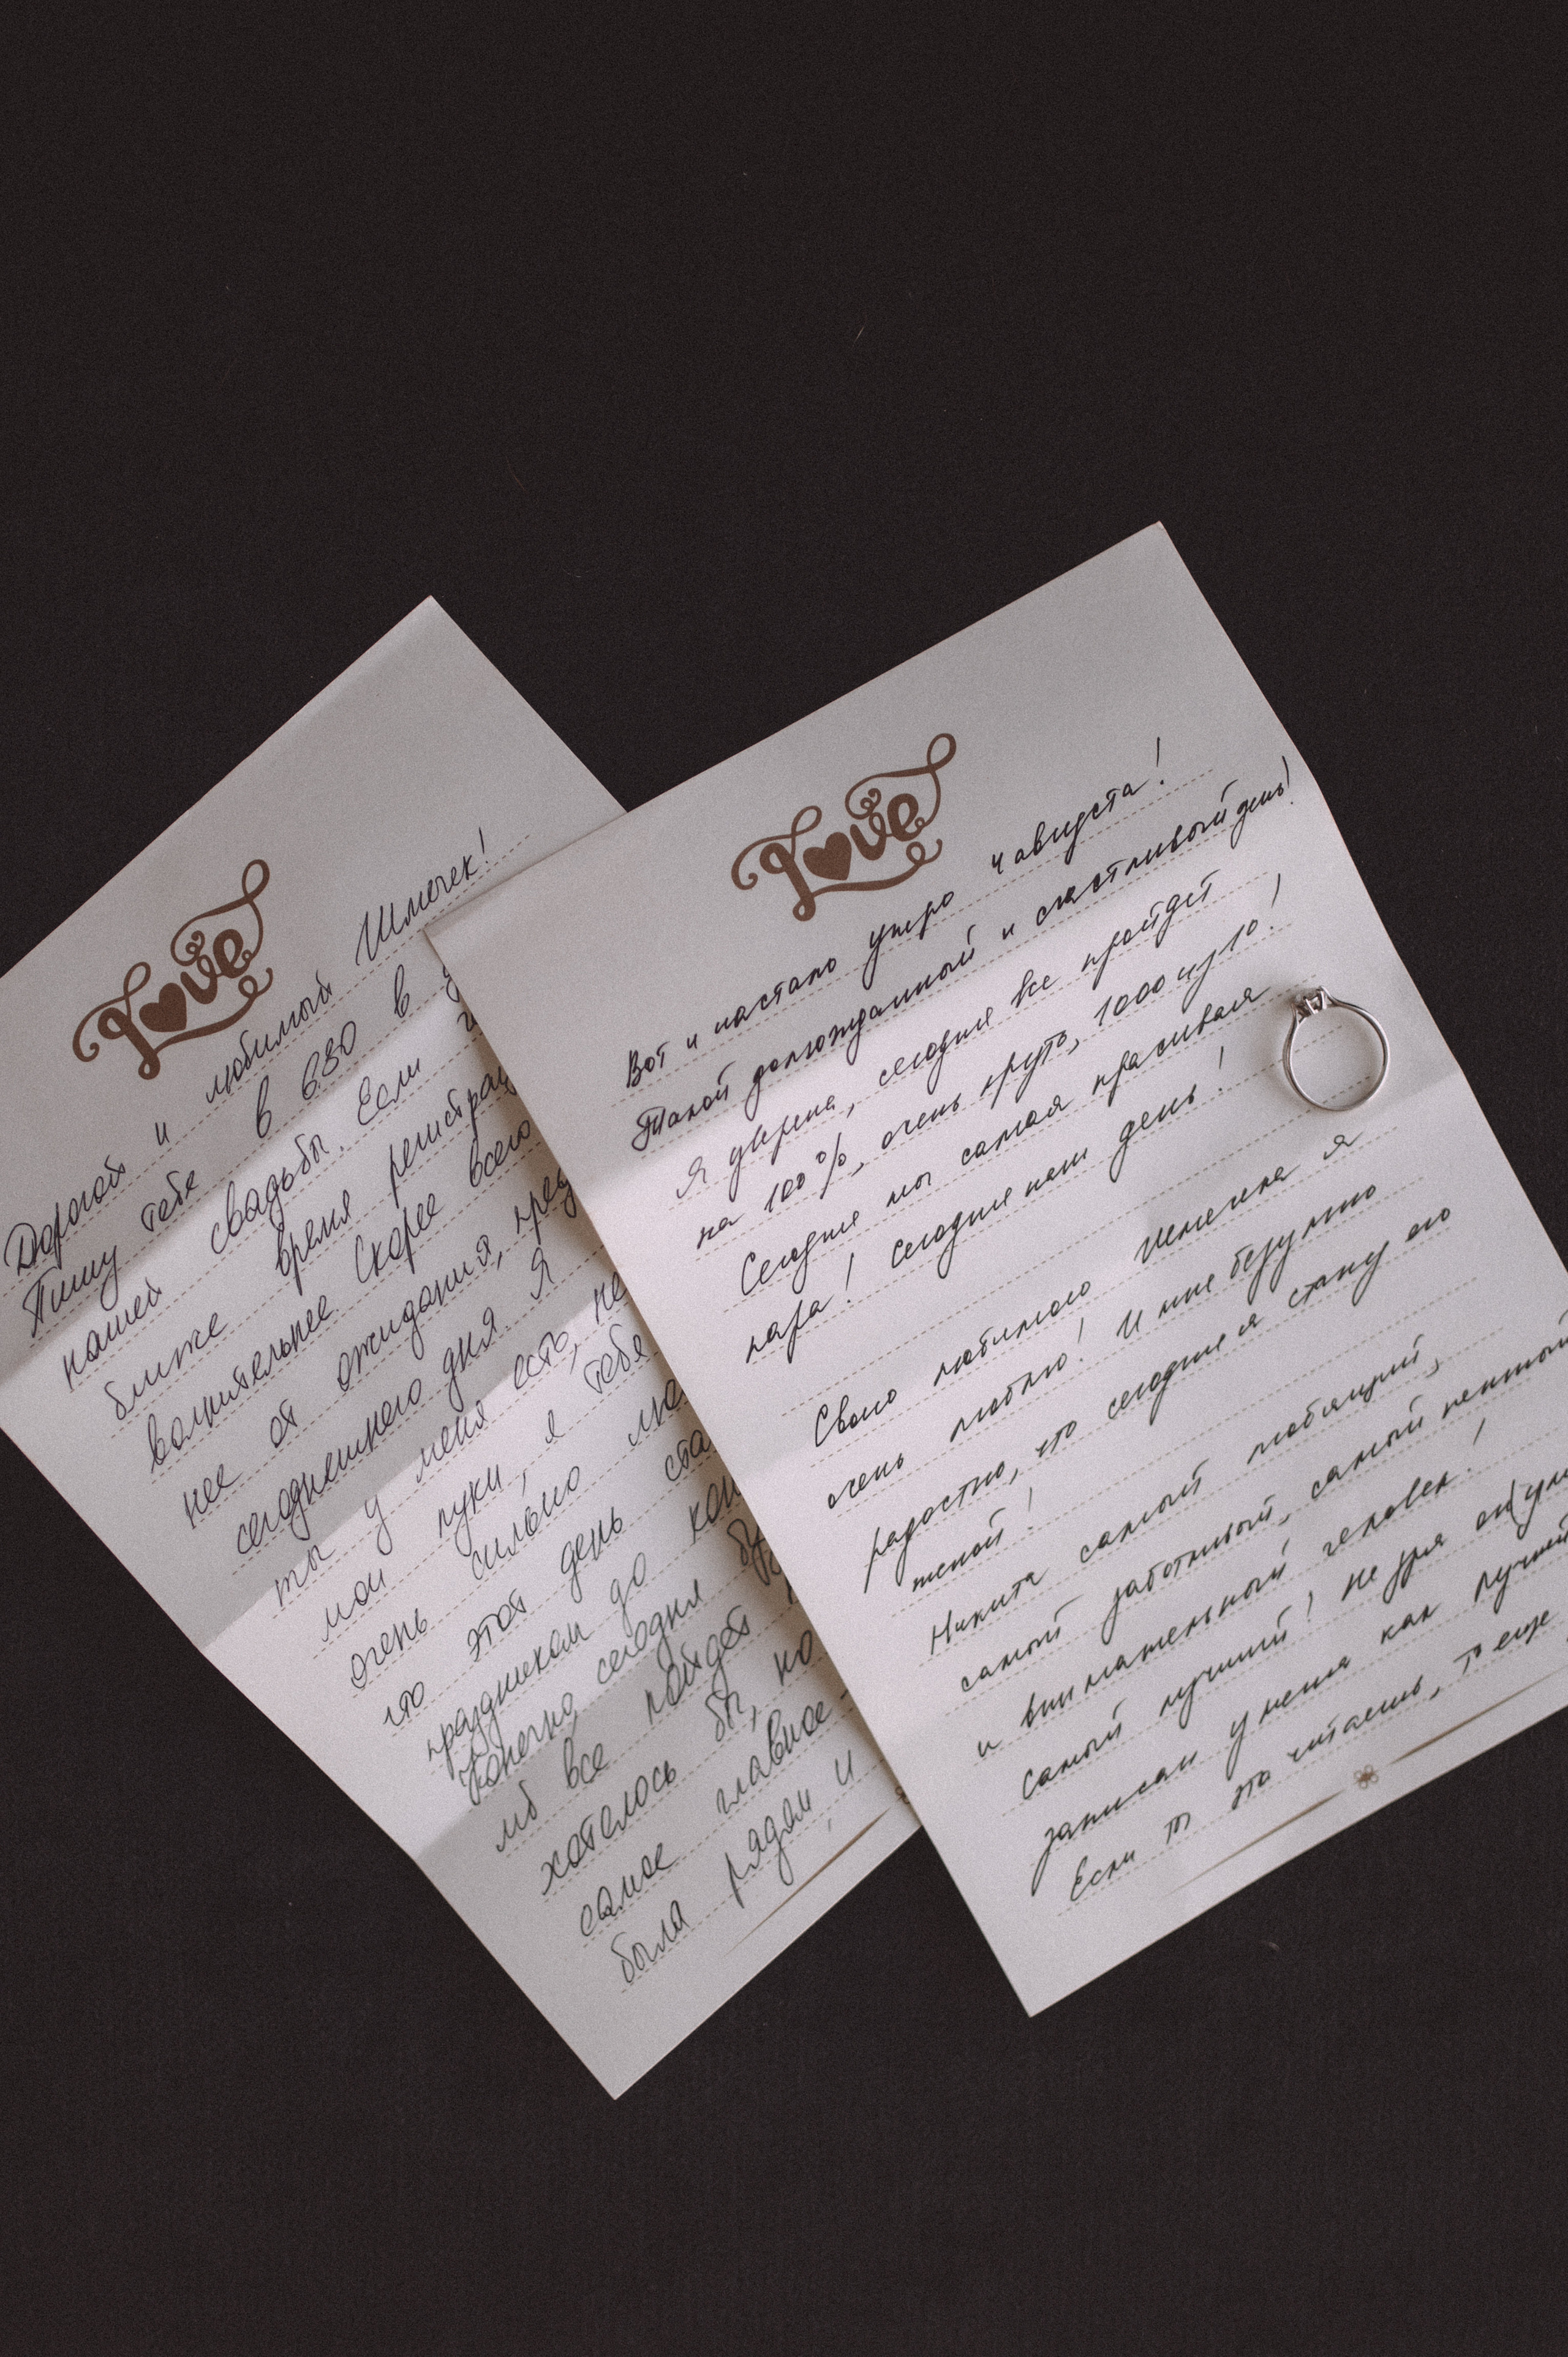 Love
Дорогой и любимый Шмочек!
Пишу тебе в 6:30 в
нашей свадьбы. Если
ближе время регистрац
волнительнее. Скорее всего
нее от ожидания, пред
сегодняшнего дня. Я
ты у меня есть, не
мои луки, я тебя
очень сильно лю
что этот день ста
праздником до кон
Конечно, сегодня бу
мб все пойдет
хотелось бы, но
самое главное -
была рядом, и
Love
Вот и настало утро 4 августа!
Такой долгожданный и счастливый день!
Я уверена, сегодня все пройдет
на 100%, очень круто, 1000 из 10!
Сегодня мы самая красивая
пара! Сегодня наш день!
Своего любимого жениха я
очень люблю! И мне безумно
радостно, что сегодня я стану его
женой!
Никита самый любящий,
самый заботливый, самый нежный
и внимательный человек!
Самый лучший! Не зря он
записан у меня как лучший
Если ты это читаешь, то еще